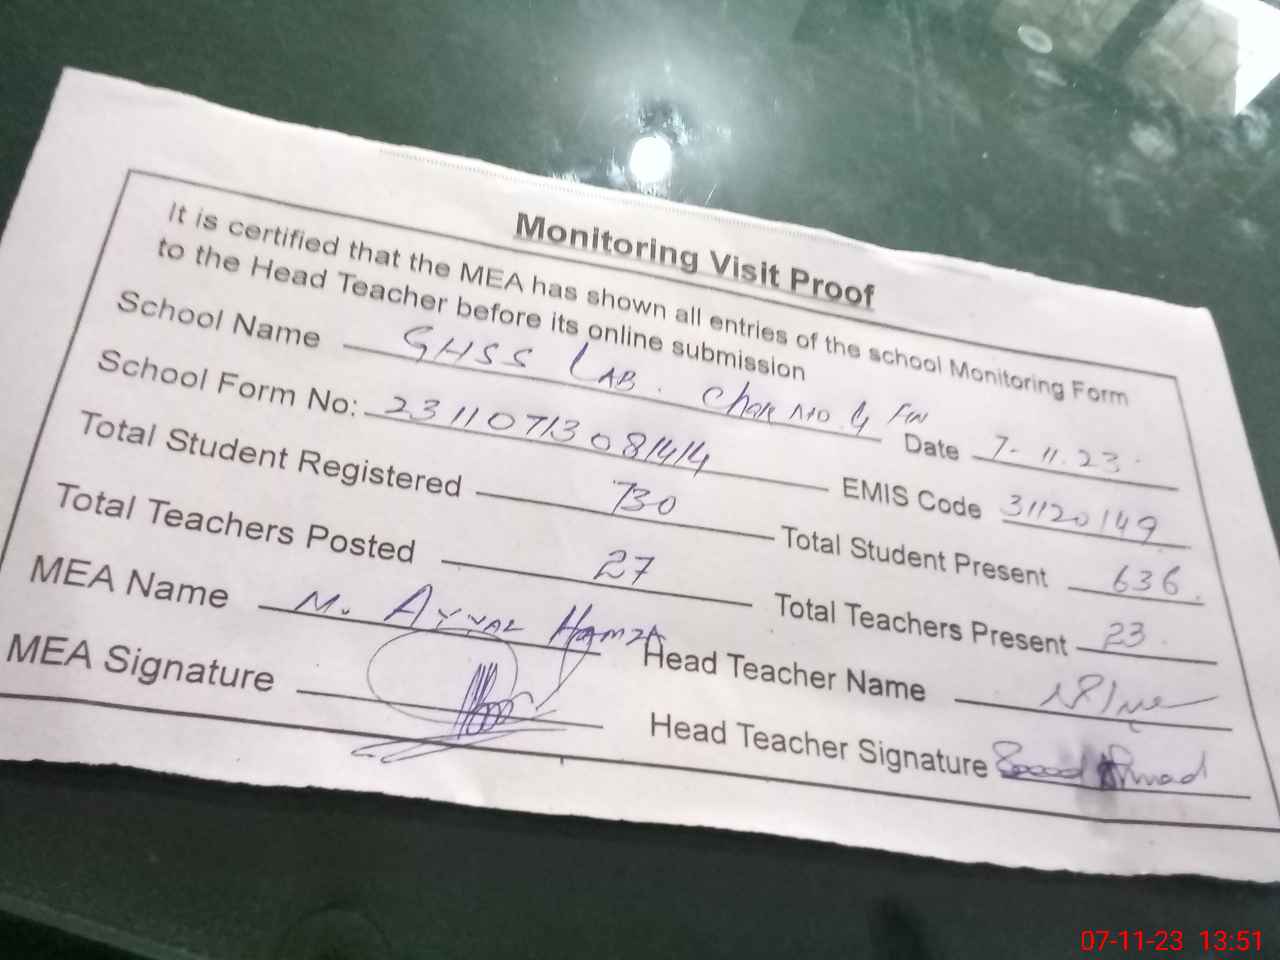 Monitoring Visit Proof
It is certified that the MEA has shown all entries of the school Monitoring Form
to the Head Teacher before its online submission
School Name GHSS LAB. Chak No. 4 Date 7-11.23
School Form No: 23110713081414 EMIS Code 31120149
Total Student Registered 730 Total Student Present 636
Total Teachers Posted 27 Total Teachers Present 23
MEA Name M. Hamza Head Teacher Name
MEA Signature Head Teacher Signature Ahmad
07-11-23 13:51